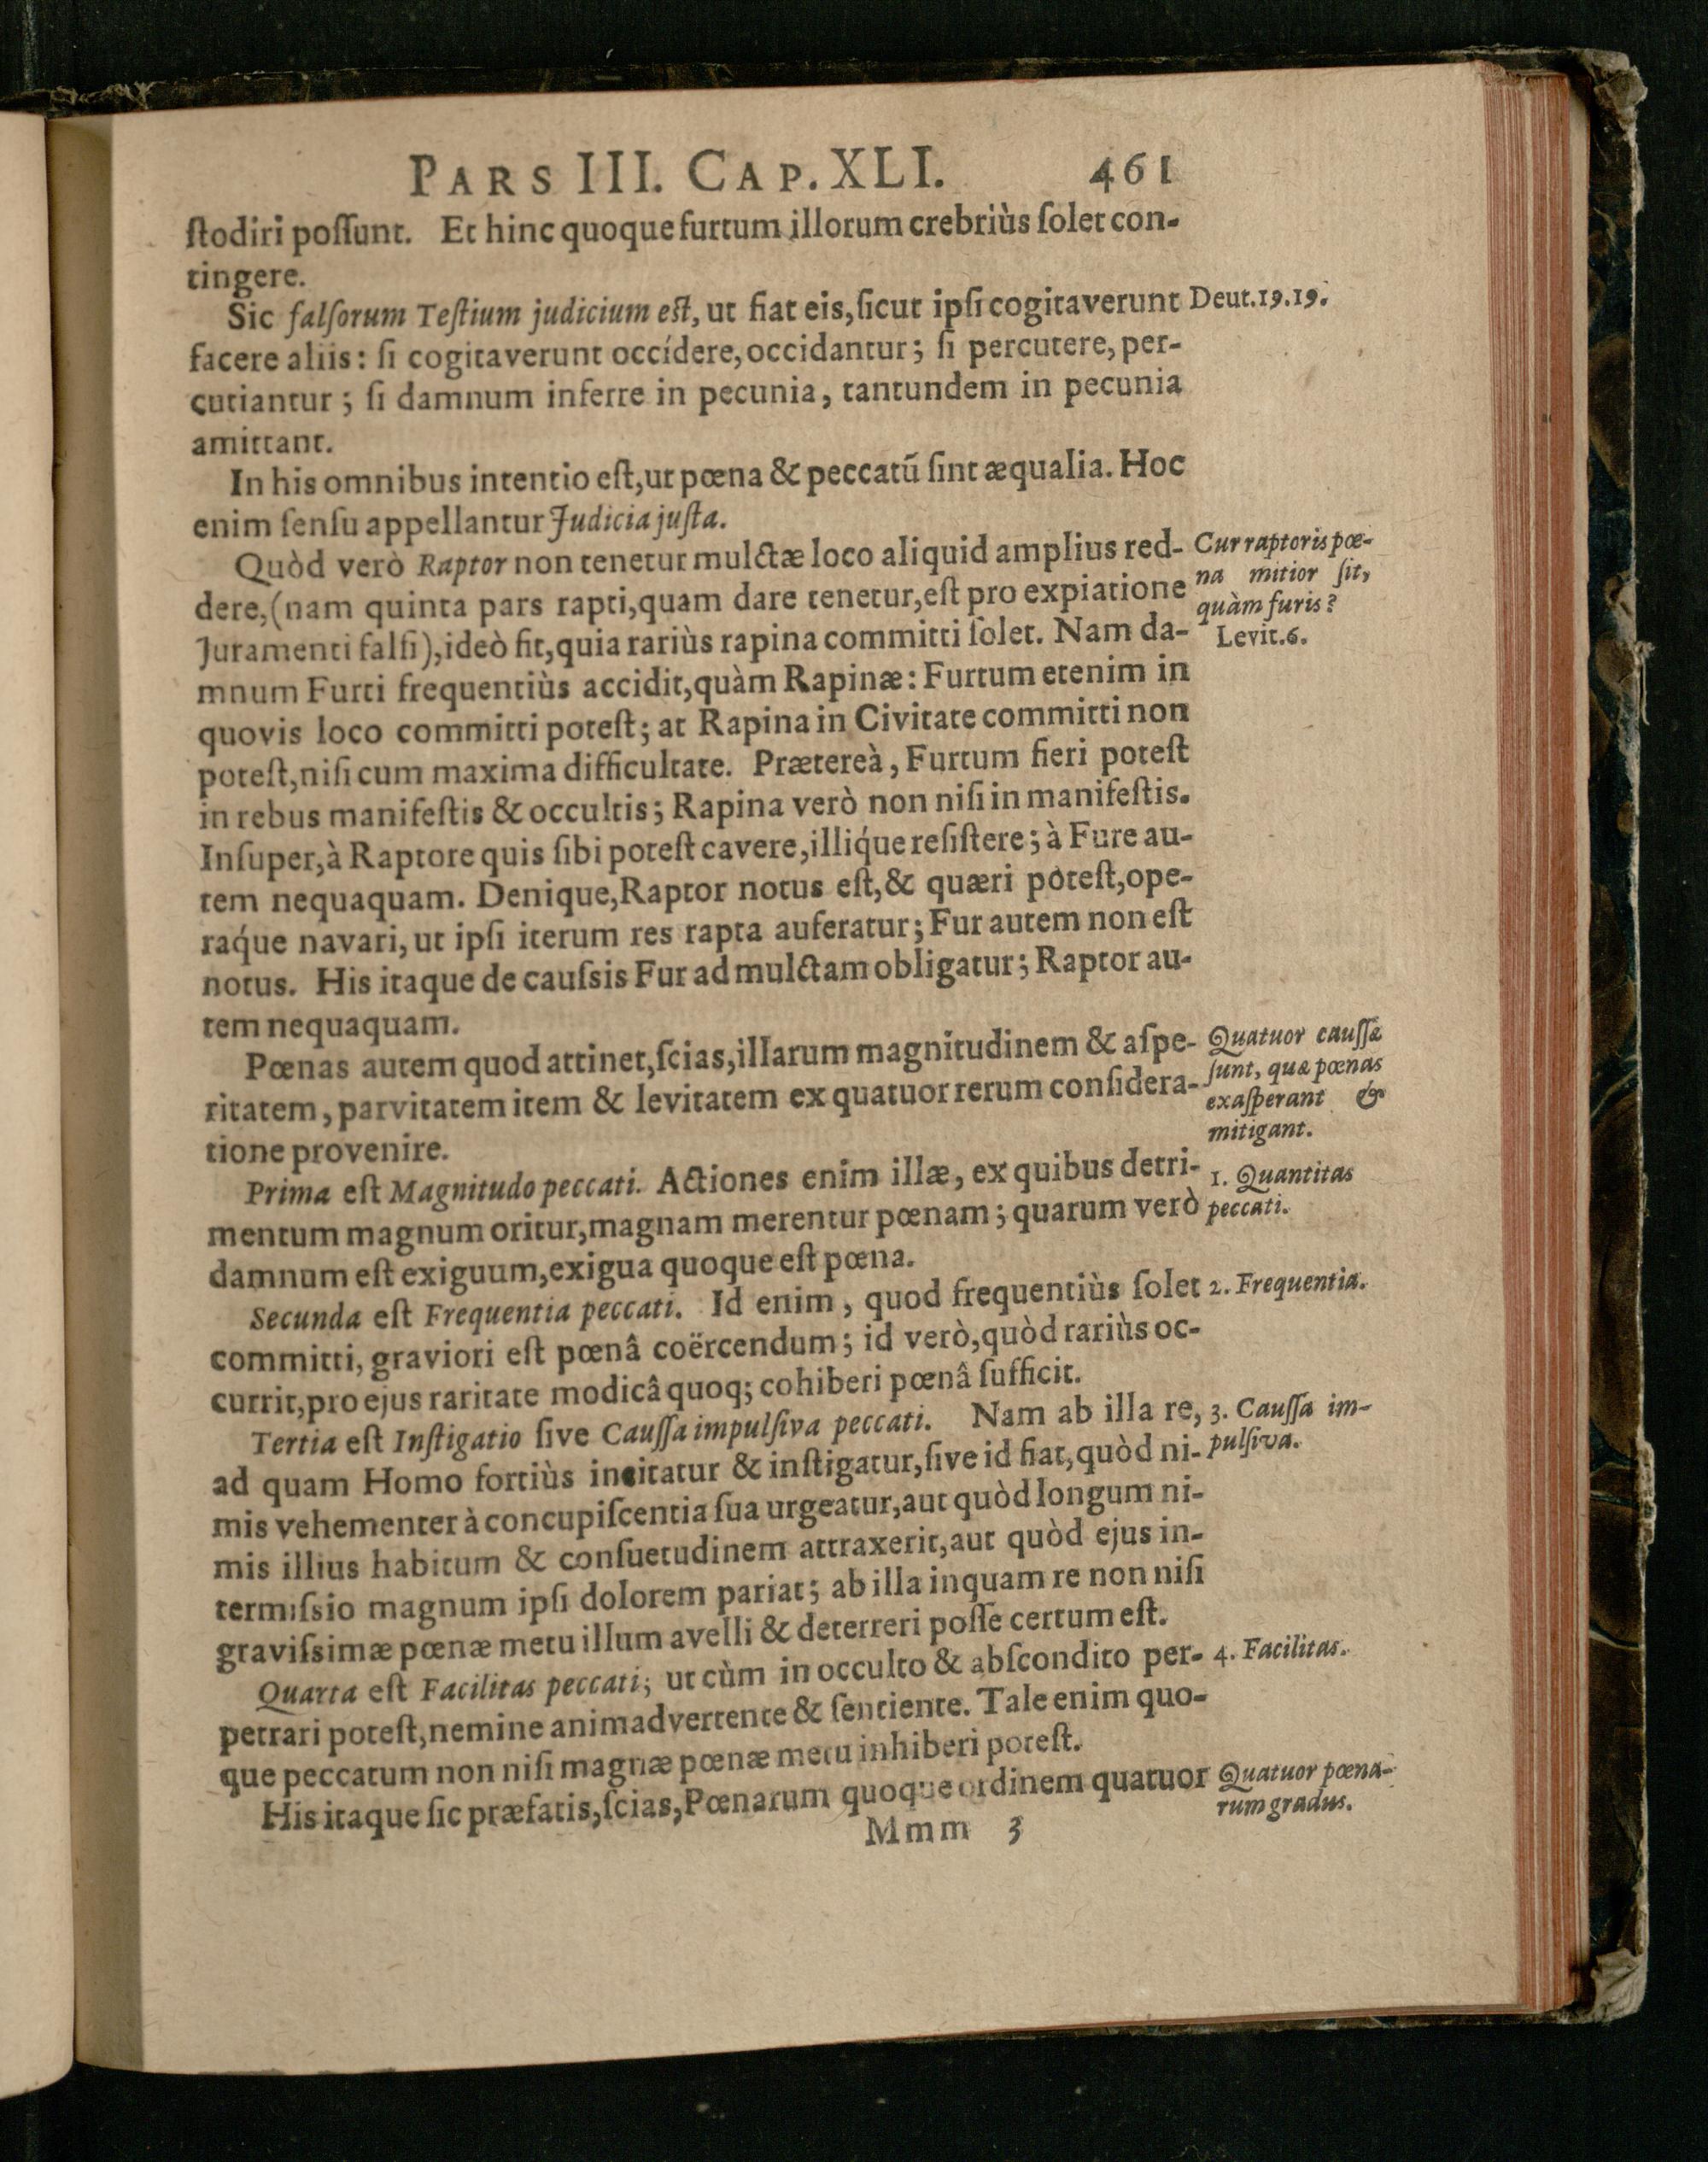 PARS III. CAP. XLI. 461
ſtodiri poſſunt. Et hinc quoque furtum illorum crebriùs ſolet con-
tingere.
Sic falſorum Teſtium judicium eſt, ut fiat eis, ſicut ipſi cogitaverunt
Deut. 19. 19.
facere aliis: ſi cogitaverunt occídere, occidantur; ſi percutere, per-
cutiantur; ſi damnum inferre in pecunia, tantundem in pecunia
amittant.
In his omnibus intentio eſt, ut pœna & peccatū ſint æqualia. Hoc
enim ſenſu appellantur Judicia juſta.
Quòd verò Raptor non tenetur mulctæ loco aliquid amplius red-
dere, (nam quinta pars rapti, quam dare tenetur, eſt pro expiatione
Juramenti falſi), ideò fit, quia rariùs rapina committi ſolet. Nam da-
Cur raptoris pœ-
na mitior ſit,
quàm furis?
Levit. 6.
mnum Furti frequentiùs accidit, quàm Rapinæ: Furtum etenim in
quovis loco committi poteſt; at Rapina in Civitate committi non
poteſt, niſi cum maxima difficultate. Prætereà, Furtum fieri poteſt
in rebus manifeſtis & occultis; Rapina verò non niſi in manifeſtis.
Inſuper, à Raptore quis ſibi poteſt cavere, illiq́ue reſiſtere; à Fure au-
tem nequaquam. Denique, Raptor notus eſt, & quæri poteſt, ope-
raq́ue navari, ut ipſi iterum res rapta auferatur; Fur autem non eſt
notus. His itaque de cauſsis Fur ad mulctam obligatur; Raptor au-
tem nequaquam.
Pœnas autem quod attinet, ſcias, illarum magnitudinem & aſpe-
ritatem, parvitatem item & levitatem ex quatuor rerum conſidera-
tione provenire.
Quatuor cauſſæ
ſunt, quæ pœnas
exaſperant &
mitigant.
Prima eſt Magnitudo peccati. Actiones enim illæ, ex quibus detri-
mentum magnum oritur, magnam merentur pœnam; quarum verò
damnum eſt exiguum, exigua quoque eſt pœna.
1. Quantitas
peccati.
Secunda eſt Frequentia peccati. Id enim, quod frequentiùs ſolet
2. Frequentia.
committi, graviori eſt pœnâ coërcendum; id verò, quòd rariùs oc-
currit, pro ejus raritate modicâ quoq; cohiberi pœnâ ſufficit.
Tertia eſt Inſtigatio ſive Cauſſa impulſiva peccati. Nam ab illa re,
ad quam Homo fortiùs incitatur & inſtigatur, ſive id fiat, quòd ni-
3. Cauſſa im-
pulſiva.
mis vehementer à concupiſcentia ſua urgeatur, aut quòd longum ni-
mis illius habitum & conſuetudinem attraxerit, aut quòd ejus in-
termiſsio magnum ipſi dolorem pariat; ab illa inquam re non niſi
graviſsimæ pœnæ metu illum avelli & deterreri poſſe certum eſt.
Quarta eſt Facilitas peccati; ut cùm in occulto & abſcondito per-
4. Facilitas.
petrari poteſt, nemine animadvertente & ſentiente. Tale enim quo-
que peccatum non niſi magnæ pœnæ metu inhiberi poteſt.
His itaque ſic præfatis, ſcias, Pœnarum quoque ordinem quatuor
Quatuor pœna-
rum gradus.
Mmm 3